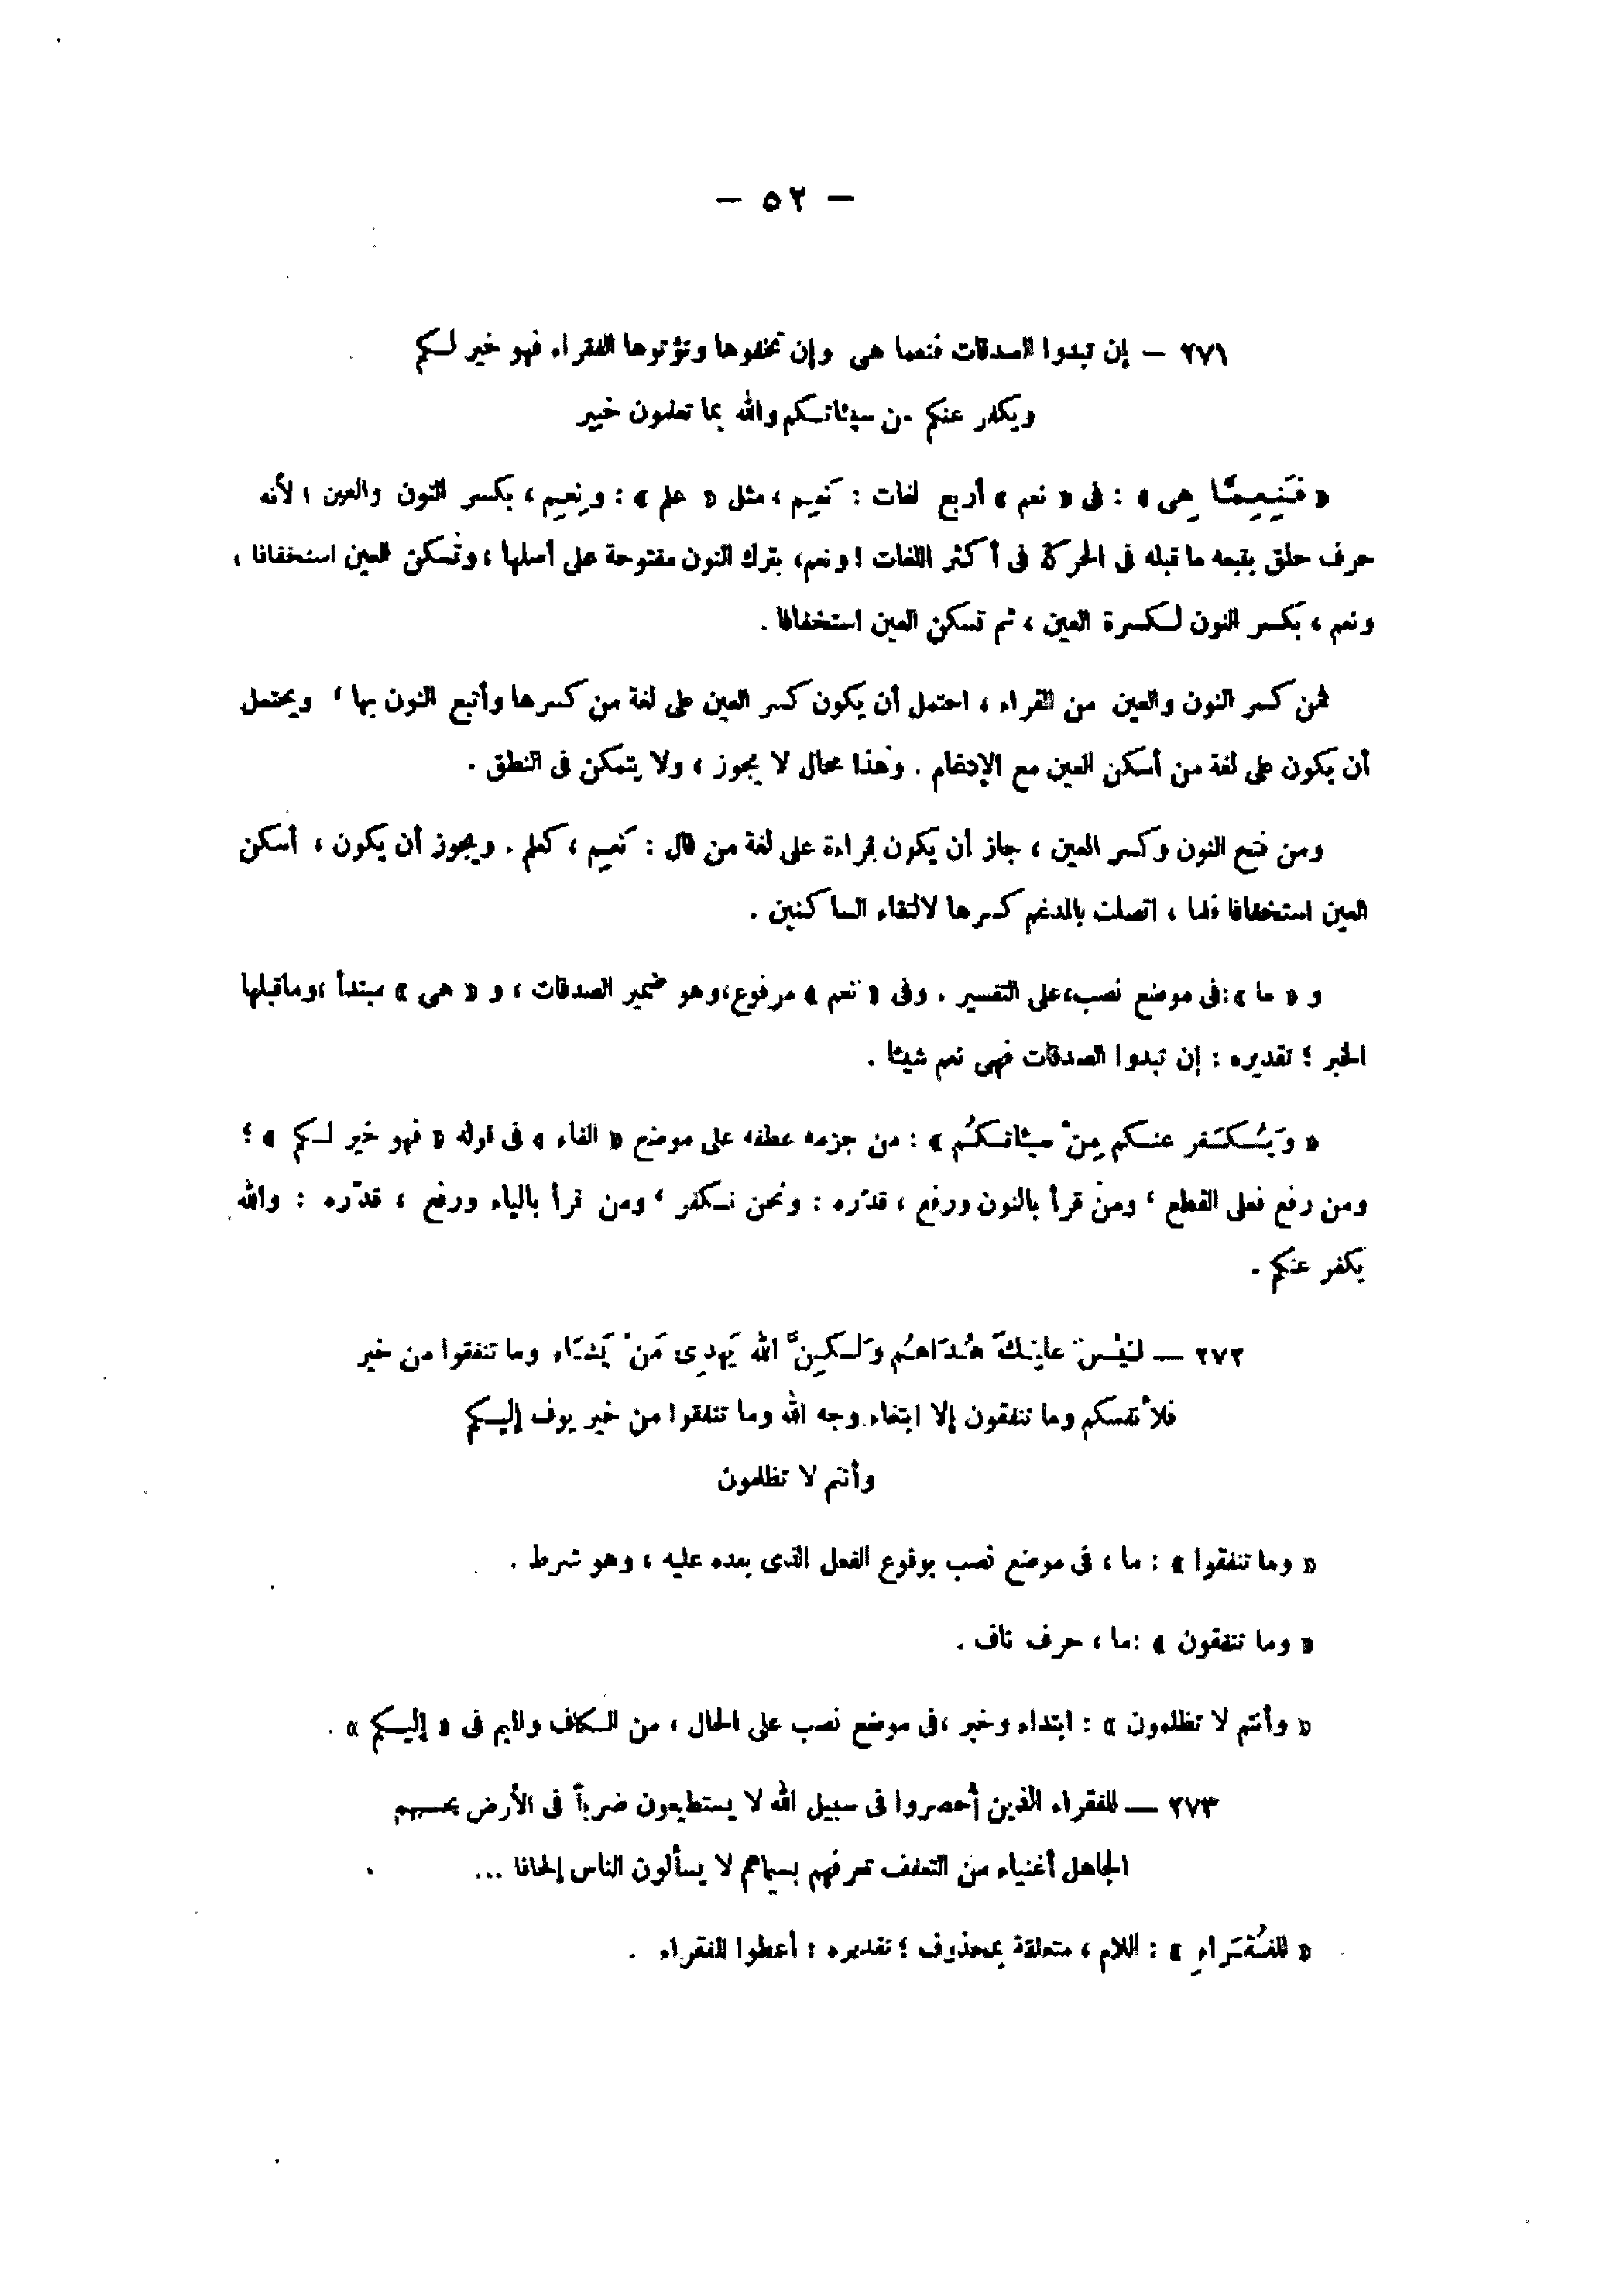 — ٥٢ —
٢٧١ — إن تبدوا الصدقات فنعما هى وإن تخفوها وتؤتوها الفقراء فهو خير لكم
ويكفر عنكم من سيئاتكم والله بما تعملون خبير
« فَنِعِمَّا هِى » : فى « نعم » أربع لغات : نَعِم ، مثل « علم » : ونِعِم ، بكسر النون والعين ؛ لأنه
حرف حلق يتبعه ما قبله فى الحركة فى أكثر اللغات ! ونعم، بترك النون مفتوحة على أصلها ، وتسكن العين استخفافا ،
ونعم ، بكسر النون لكسرة العين ، ثم تسكن العين استخفافا .
فمن كسر النون والعين من القراء ، احتمل أن يكون كسر العين على لغة من كسرها وأتبع النون بها ، ويحتمل
أن يكون على لغة من أسكن العين مع الإدغام . وهذا محال لا يجوز ، ولا يتمكن فى النطق .
ومن فتح النون وكسر العين ، جاز أن يكون قراءة على لغة من قال : نَعِم ، كعلم . ويجوز أن يكون ، أسكن
العين استخفافا فلما ، اتصلت بالمدغم كسرها لالتقاء الساكنين .
و « ما »:فى موضع نصب،على التفسير . وفى « نعم » مرفوع،وهو ضمير الصدقات ، و « هى » مبتدأ ،وماقبلها
الخبر ؛ تقديره : إن تبدوا الصدقات فهى نعم شيئا .
« وَيُكَفر عنكم مِنْ سيئاتكُم » : من جزمه عطفه على موضع « الفاء » فى قوله « فهو خير لكم » ؛
ومن رفع فعلى القطع ، ومن قرأ بالنون ورفع ، قدّره : ونحن نكفر ، ومن قرأ بالياء ورفع ، قدّره : والله
يكفر عنكم .
٢٧٢ — لَيْسَ عليْكَ هُدَاهُم وَلَكِنَّ الله يَهدِى مَنْ يَشَاء وما تنفقوا من خير
فلأنفسكم وما تنفقون إلا ابتغاء وجه الله وما تنفقوا من خير يوف إليكم
وأنتم لا تظلمون
« وما تنفقوا » : ما ، فى موضع نصب بوقوع الفعل الذى بعده عليه ، وهو شرط .
« وما تنفقون » :ما ، حرف ناف .
« وأنتم لا تظلمون » : ابتداء وخبر ،فى موضع نصب على الحال ، من الكاف والميم فى « إليكم » .
٢٧٣ — للفقراء الذين أُحصروا فى سبيل الله لا يستطيعون ضرباً فى الأرض يحسبهم
الجاهل أغنياء من التعفف تعرفهم بسيماهم لا يسألون الناس إلحافا ...
« للفُقَراءِ » : اللام ، متعلقة بمحذوف ؛ تقديره : أعطوا الفقراء .